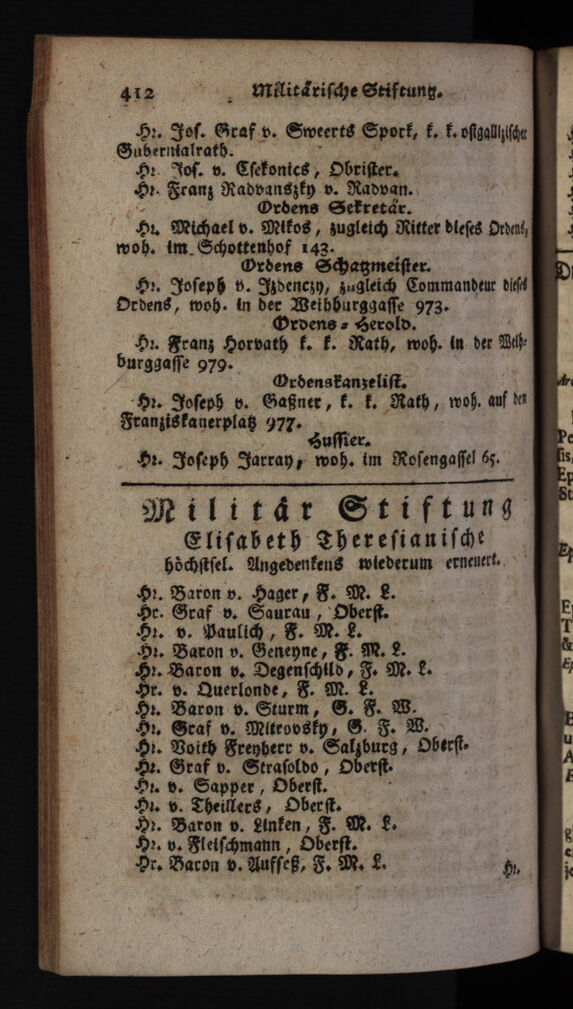 412 Militärische Stiftung.
Hr. Jos. Graf v. Sweerts Spork, k. k. ostgallizischer
Gubernialrath.
Hr. Jos. v. Csekonics, Obrister.
Hr. Franz Radvanszky v. Radvan.
Ordens Sekretär.
Hr. Michael v. Mikos, zugleich Ritter dieses Ordens,
woh. im Schottenhof 143.
Ordens Schatzmeister.
Hr. Joseph v. Izdenczy, zugleich Commandeur dieses
Ordens, woh. in der Weihburggasse 973.
Ordens-Herold.
Hr. Franz Horvath k. k. Rath, woh. in der Weih-
burggasse 979.
Ordenskanzelist.
Hr. Joseph v. Gaßner, k. k. Rath, woh. auf den
Franziskanerplatz 977.
Huissier.
Hr. Joseph Jarray, woh. im Rosengassel 65.
Militär Stiftung
Elisabeth Theresianische
höchstsel. Angedenkens wiederum erneuert.
Hr. Baron v. Hager, F. M. L.
Hr. Graf v. Saurau, Oberst.
Hr. v. Paulich, F. M. L.
Hr. Baron v. Geneyne, F. M. L.
Hr. Baron v. Degenschild, F. M. L.
Hr. v. Querlonde, F. M. L.
Hr. Baron v. Sturm, G. F. W.
Hr. Graf v. Mitrovsky, G. F. W.
Hr. Voith Freyherr v. Salzburg, Oberst.
Hr. Graf v. Strasoldo, Oberst.
Hr. v. Sapper, Oberst.
Hr. v. Theillers, Oberst.
Hr. Baron v. Linken, F. M. L.
Hr. v. Fleischmann, Oberst.
Hr. Baron v. Aufseß, F. M. L.
Hr.